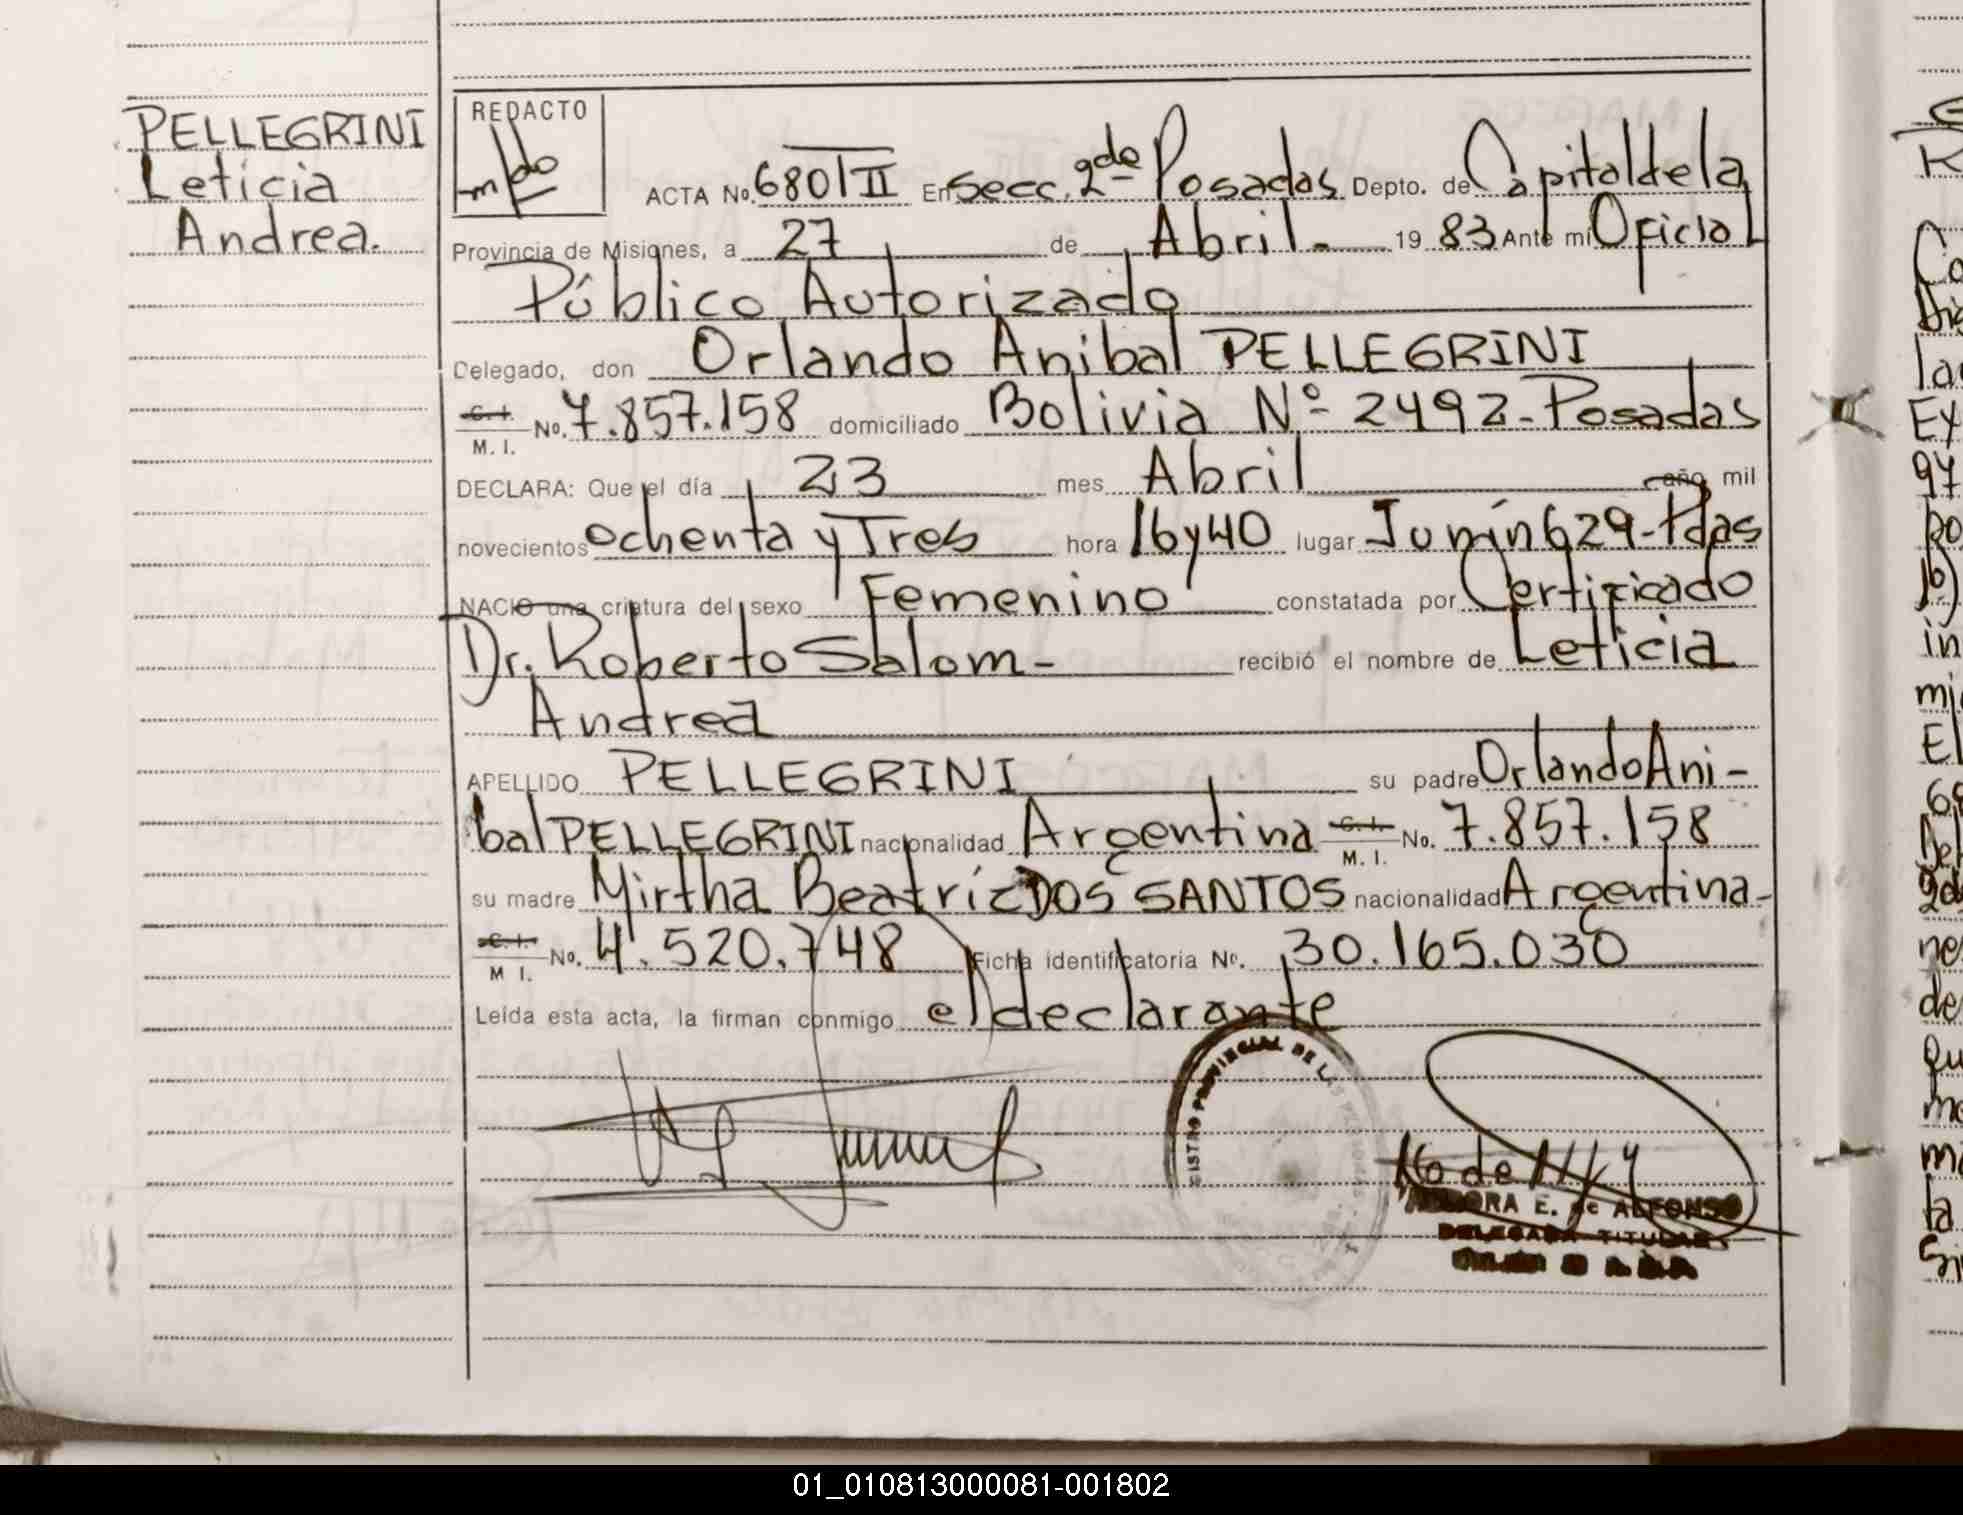 PELLEGRINI
Leticia
Andrea.
REDACTO
ACTA No. 680 III En Secc. 2da Posadas Depto. de Capital de la
Provincia de Misiones, a 27 de Abril - 19 83 Ante mi Oficial
Público Autorizado
Delegado, don Orlando Anibal PELLEGRINI
C. I. M. I. No. 7.857.158 domiciliado Bolivia Nº 2492 - Posadas
DECLARA: Que el día 23 mes Abril año mil
novecientos ochenta y Tres hora 16 y 40 lugar Junín 629 - Pdas
NACIO una criatura del sexo Femenino constatada por Certificado
Dr. Roberto Salom - recibió el nombre de Leticia
Andrea
APELLIDO PELLEGRINI su padre Orlando Ani-
bal PELLEGRINI nacionalidad Argentina C. I. M. I. No. 7.857.158
su madre Mirtha Beatríz DOS SANTOS nacionalidad Argentina -
C. I. M I. No. 4.520.748 Ficha identificatoria No. 30.165.030
Leída esta acta, la firman conmigo el declarante
PROVINCIAL DE LAS
E. de ALFONSO
DELEGADA TITULAR
01_010813000081-001802